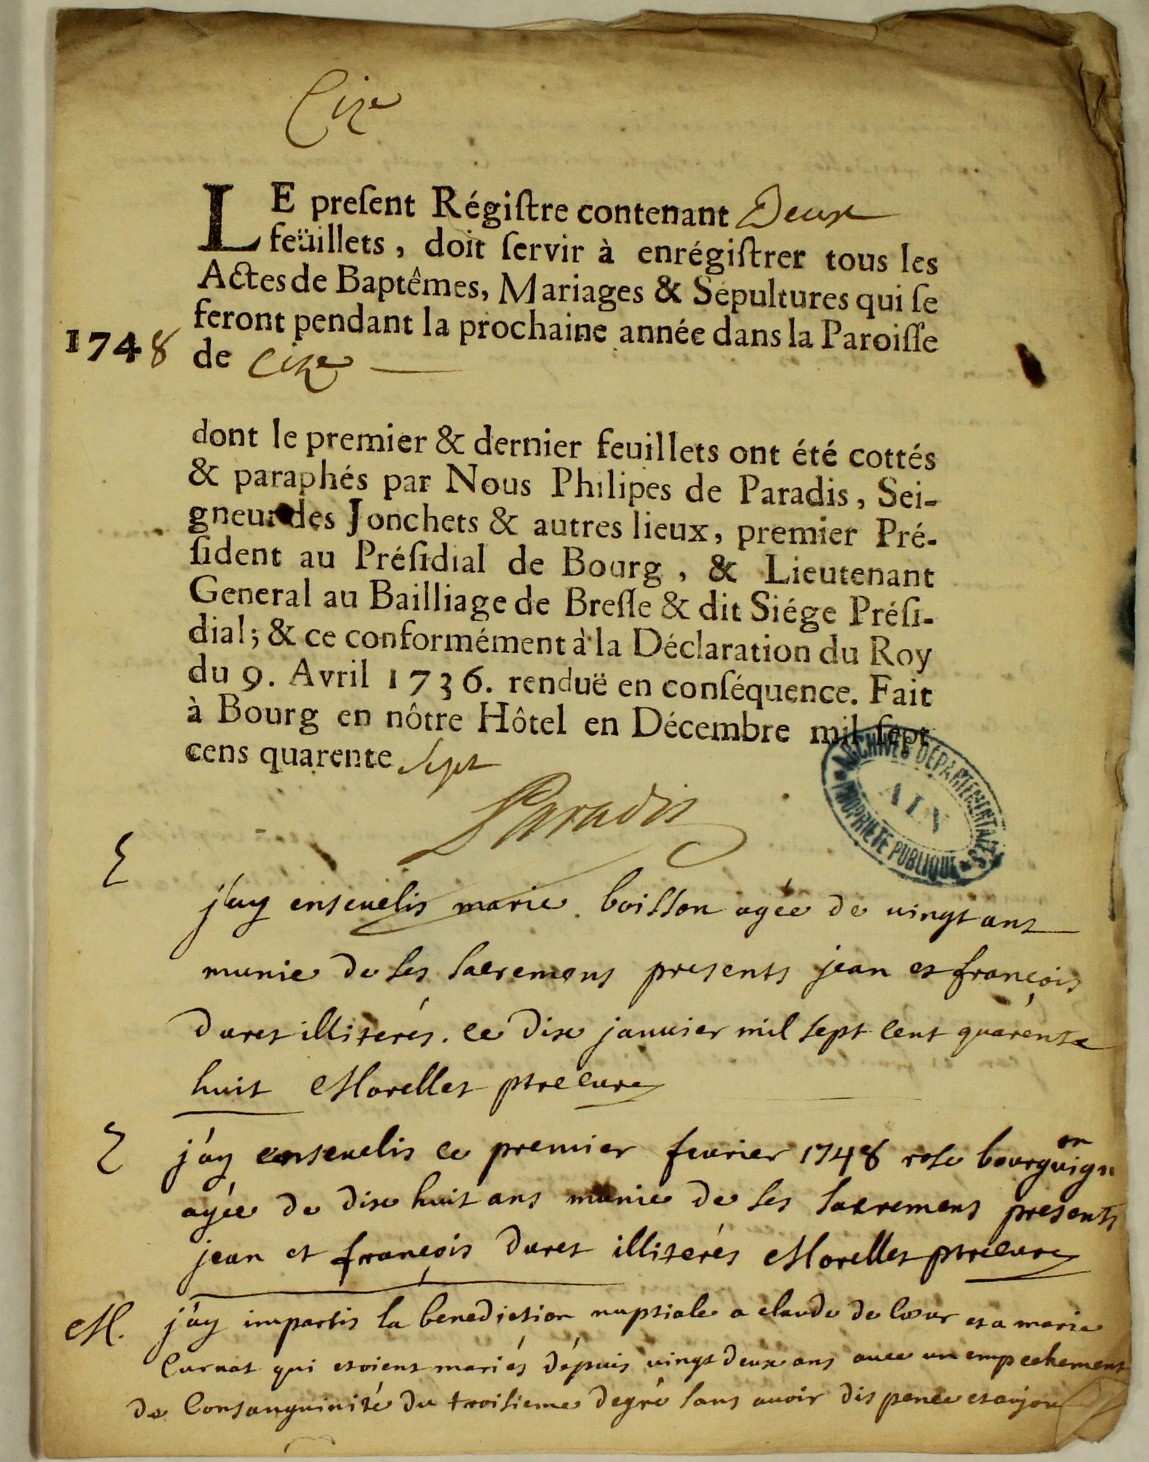 Cize
LE preſent Régiſtre contenant Deux
feüillets, doit ſervir à enrégiſtrer tous les
Actes de Baptêmes, Mariages & Sepultures qui ſe
feront pendant la prochaine année dans la Paroiſſe
1748 de Cize
dont le premier & dernier feuillets ont été cottés
& paraphés par Nous Philipes de Paradis, Sei-
gneur des Jonchets & autres lieux, premier Pré-
ſident au Préſidial de Bourg, & Lieutenant
General au Bailliage de Breſſe & dit Siége Préſi-
dial; & ce conformément à la Déclaration du Roy
du 9. Avril 1736. renduë en conſéquence. Fait
à Bourg en nôtre Hôtel en Décembre mil ſept
cens quarente sept
Paradis
ARCHIVES DEPARTEMENTALES
AIN
PROPRIETE PUBLIQUE
j'ay ensevelis marie boisson agée de vingt ans
munie de ses sacremens presents jean et françois
duret illiterés. ce dix janvier mil sept cent quarénte
huit Morellet ptre curé
j'ay ensevelis ce premier fevrier 1748 rose bourguignon
agée de dix huit ans munie de ses sacremens presents
jean et françois duret illiterés Morellet ptre curé
M. j'ay impartis la benediction nuptiale a claude de loeur et a marie
Curnat qui etoient mariés dépuis vingt deux ans avec un empechement
de Consanguinité du troisieme degré sans avoir dispence et